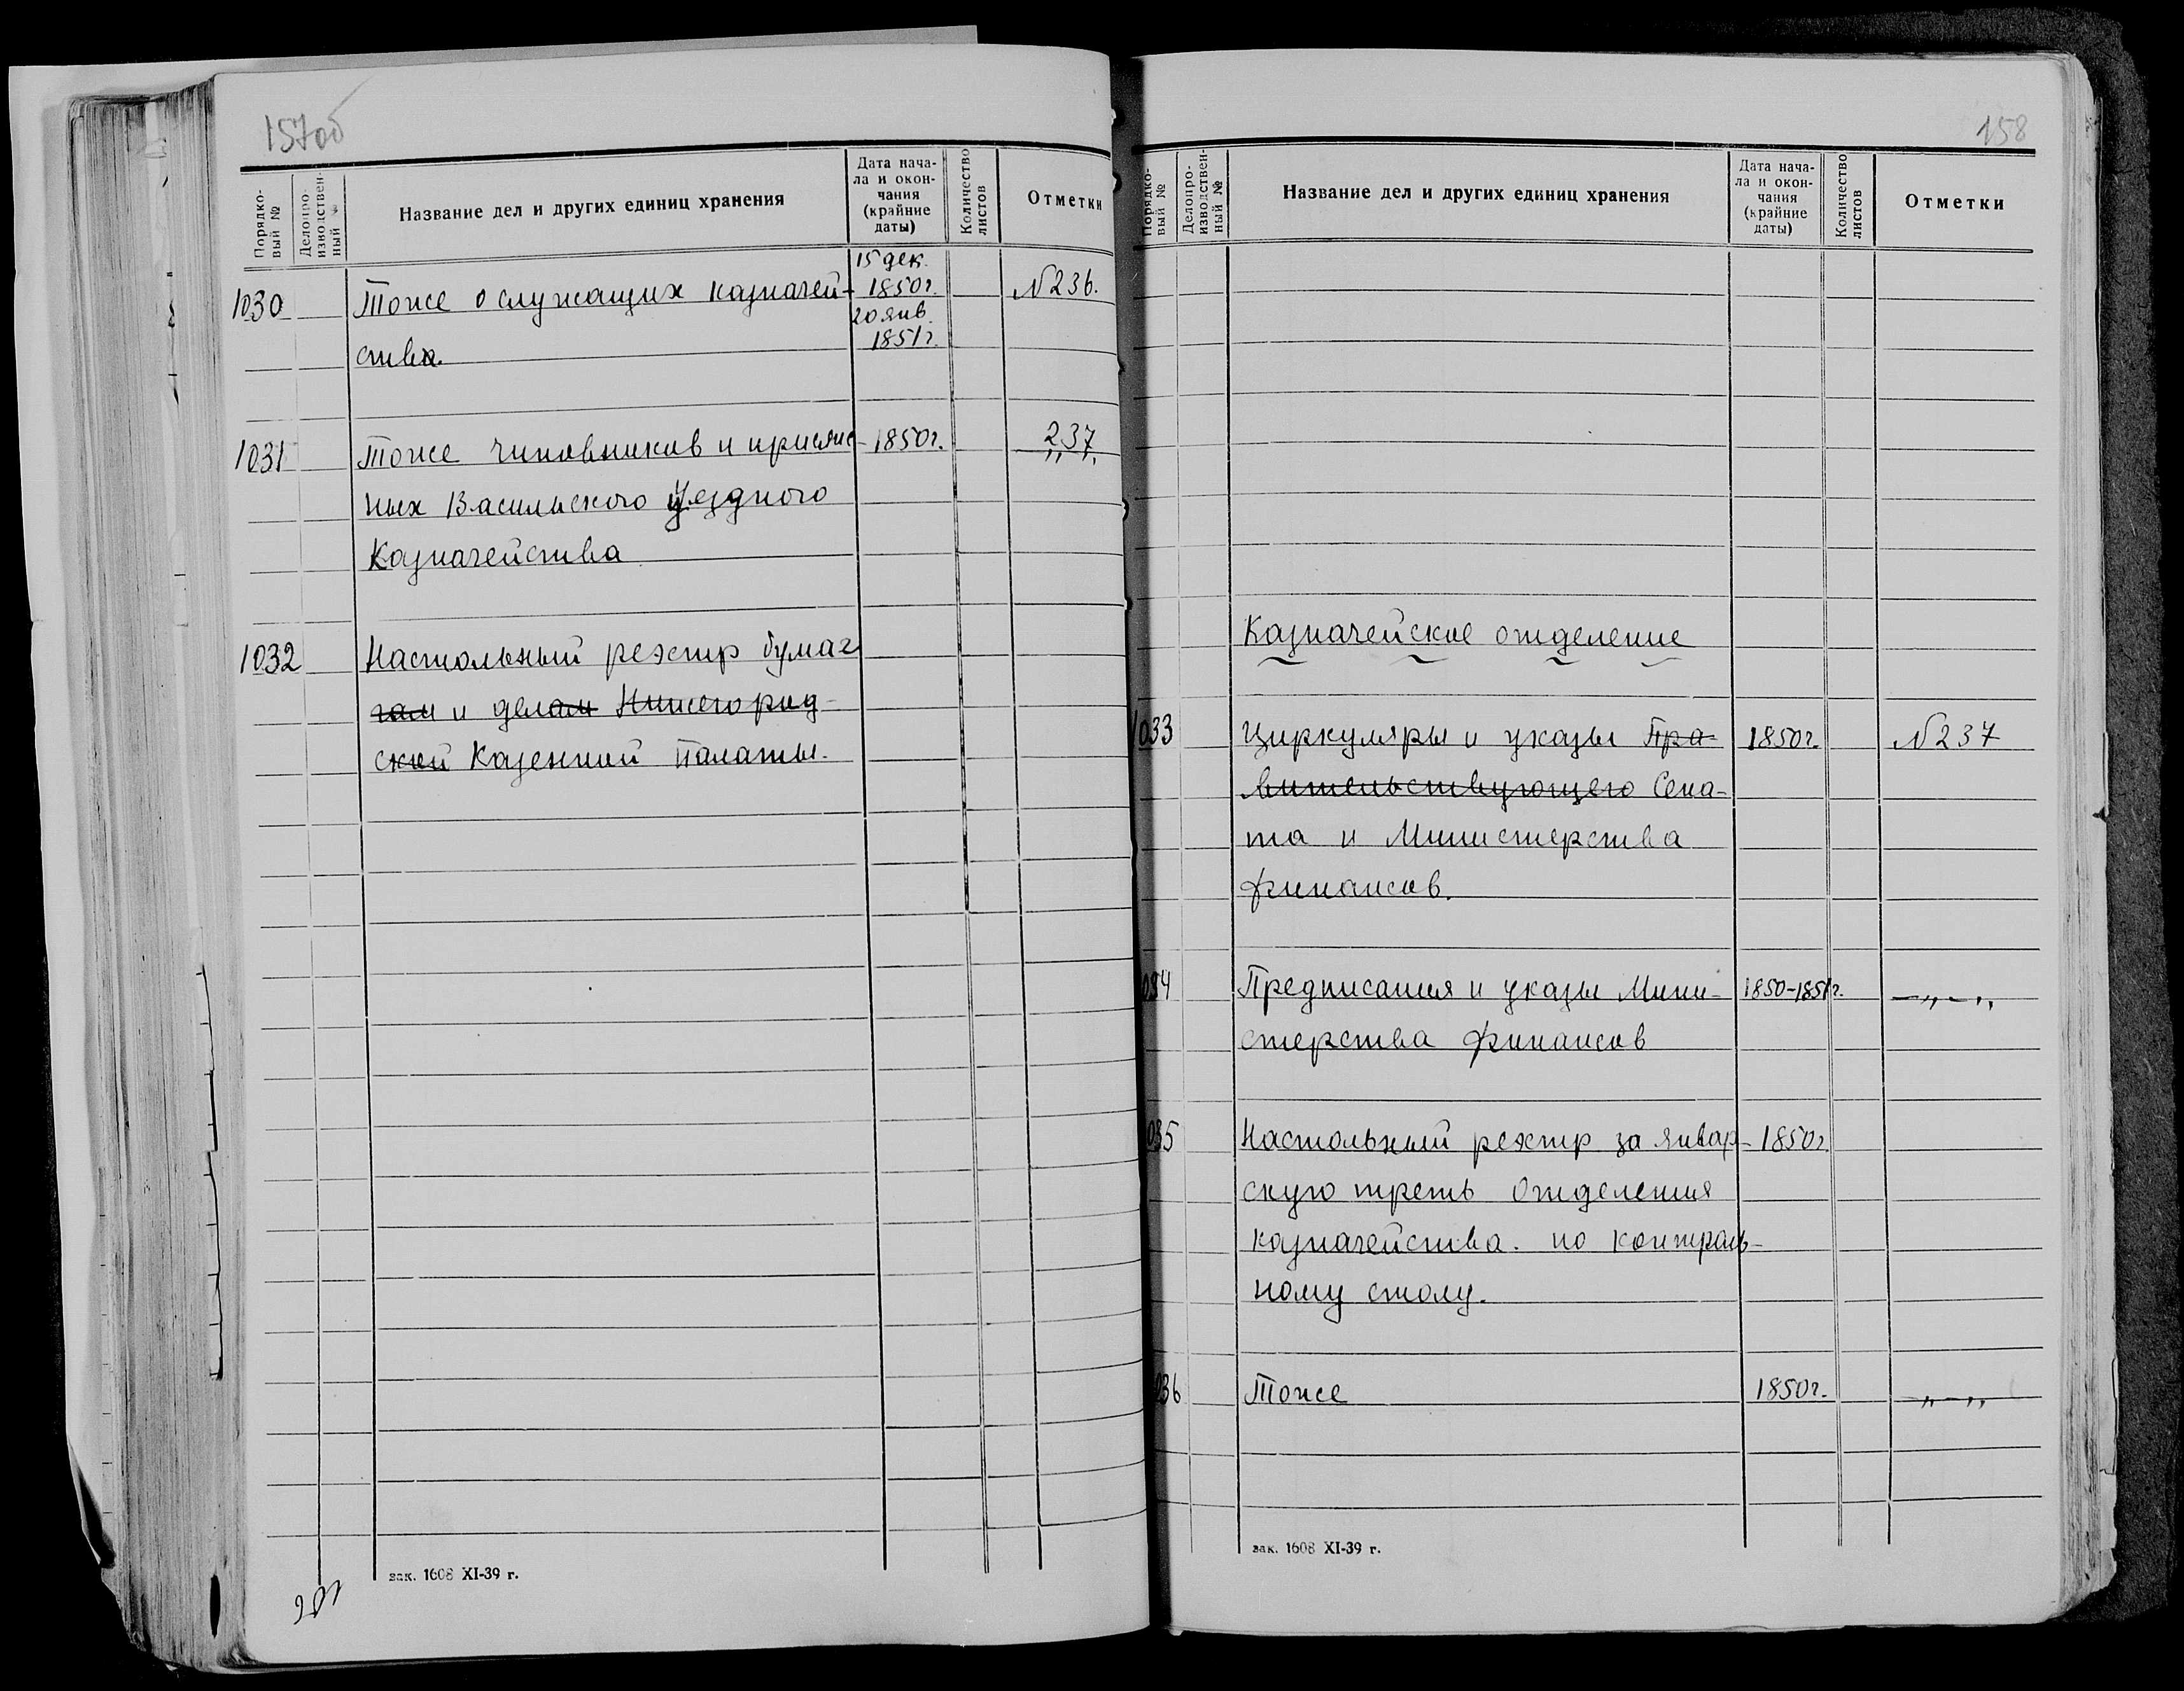 157об
Порядко-
вый №
Делопро-
изводствен-
ный №
Название дел и других единиц хранения
Дата нача-
ла и окон-
чания
(крайние
даты)
Количество
листов
Отметки
15 дек.
1030 Тоже о служащих казначей- 1850г. №236.
20 янв.
ства. 1851г.
1031 Тоже чиновников и присяж- 1850г. 237
„ „.
ных Васильского Уездного
Казначейства
1032 Настольный реэстр бумаг
гам и делам Нижегород-
ской Казенной Палаты.
зак. 1608 XI-39 г.
158
Порядко-
вый №
Делопро-
изводствен-
ный №
Название дел и других единиц хранения
Дата нача-
ла и окон-
чания
(крайние
даты)
Количество
листов
Отметки
Казначейское отделение
1033 Циркуляры и указы Пра- 1850г. №237
вительствующего Сена-
та и Министерства
финансов.
034 Предписания и указы Мини- 1850-1851г. —„—„
стерства финансов
035 Настольный реэстр за январ- 1850г.
скую треть Отделения
казначейства. по контроль-
ному столу.
036 Тоже 1850г. „—„
зак. 1608 XI-39 г.